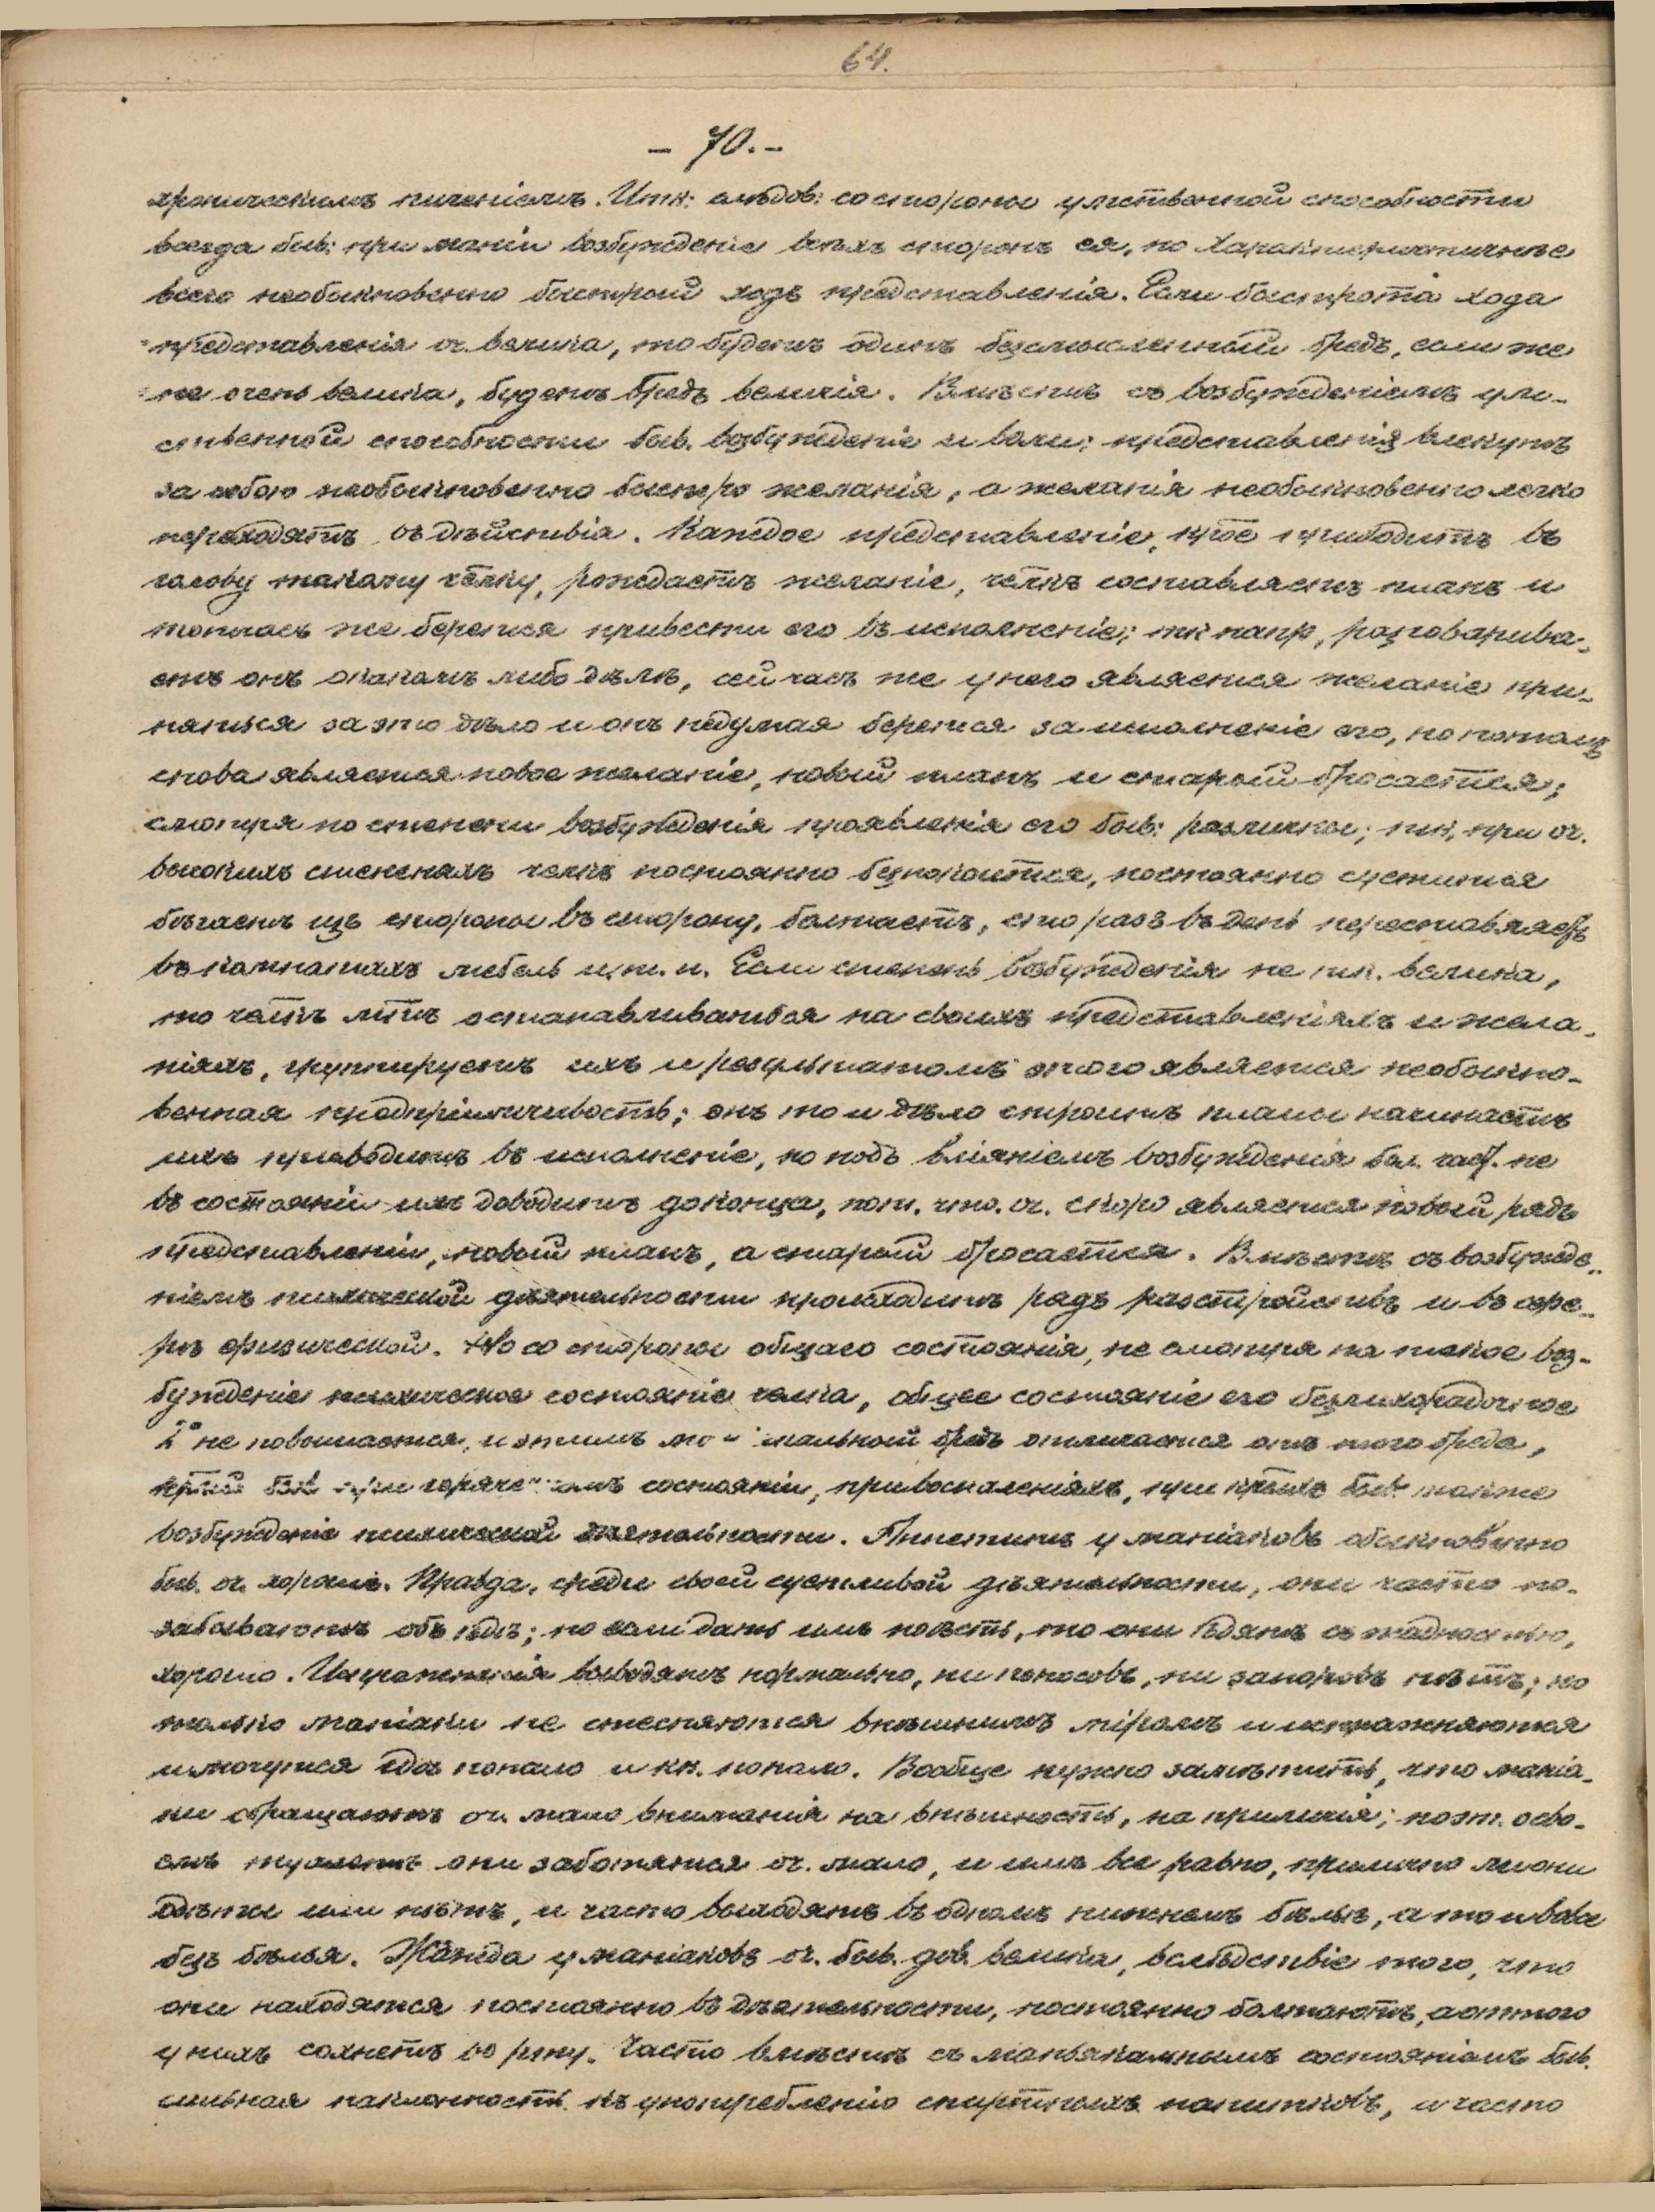 64.
– 70. –
хроническимъ теченіемъ. Итк: слѣдов: со стороны умственной способности
всегда быв: при маніи возбужденіе всѣхъ сторонъ ея, но характеристичнѣе
всего необыкновенно быстрый ходъ представленія. Если быстрота хода
представленія оч. велика, то будетъ одинъ безсмысленный бредъ, если же
не очень велика, будетъ бредъ величія. Вмѣстѣ съ возбужденіемъ ум-
ственной способности быв. возбужденіе и воли; представленія влекутъ
за собою необыкновенно быстро желанія, а желанія необыкновенно легко
переходятъ въ дѣйствія. Каждое представленіе, крое приходитъ въ
голову такому члку, рождаетъ желаніе, челкъ составляетъ планъ и
тотчасъ же берется привести его въ исполненіе; тк напр, разговарива-
етъ онъ о какомъ либо дѣлѣ, сейчасъ же у него является желаніе при-
няться за это дѣло и онъ недумая берется за исполненіе его, но потомъ
снова является новое желаніе, новый планъ и старый бросается;
смотря по степени возбужденія проявленія его быв: различны; тк, при оч.
высокихъ степеняхъ челкъ постоянно безпокоится, постоянно суетится
бѣгаетъ изъ стороны въ сторону, болтаетъ, сто разъ въ день переставляетъ
въ комнатахъ мебель и т. п. Если степень возбужденія не тк. велика,
то челкъ мтъ останавливаться на своихъ представленіяхъ и жела-
ніяхъ, группируетъ ихъ и результатомъ этого является необыкно-
венная предпріимчивость; онъ то и дѣло строитъ планы начинаетъ
ихъ приводить въ исполненіе, но подъ вліяніемъ возбужденія бол. част. не
въ состояніи ихъ доводить доконца, пот. что. оч. скоро является новый рядъ
представленій, новый планъ, а старый бросается. Вмѣстѣ съ возбужде-
ніемъ психической дѣятельности происходитъ рядъ разстройствъ и въ сфе-
рѣ физической. Но со стороны общаго состоянія, не смотря на такое воз-
бужденіе психическое состояніе челка, общее состояніе его безлихорадочное
t° не повышается, и этимъ маніакальный бредъ отличается отъ того бреда,
крый быв при горячечномъ состояніи, при воспаленіяхъ, при крыхъ быв также
возбужденіе психической дѣятельности. Аппетитъ у маніаковъ обыкновенно
быв. оч. хорошъ. Правда, среди своей суетливой дѣятельности, они часто по-
забываютъ объ ѣдѣ; но если дать имъ поѣсть, то они ѣдятъ съ жадностью,
хорошо. Испражненія выводятъ нормально, ни поносовъ, ни запоровъ нѣтъ; но
только маніаки не стесняются внѣшнимъ міромъ и испражняются
и мочутся гдѣ попало и кк. попало. Вообще нужно замѣтить, что маніа-
ки обращаютъ оч. мало вниманія на внѣшность, на приличія; поэт. о сво-
емъ туалетѣ они заботятся оч. мало, и имъ все равно, прилично ли они
одѣты или нѣтъ, и часто выходятъ въ одномъ нижнемъ бѣльѣ, а то и вовсе
безъ бѣлья. Жажда у маніаковъ оч. быв. дов. велика, вслѣдствіе того, что
они находятся постоянно въ дѣятельности, постоянно болтаютъ, а оттого
у нихъ сохнетъ во рту. Часто вмѣстѣ съ маньякальнымъ состояніемъ быв.
сильная наклонность къ употребленію спиртныхъ напитковъ, и часто